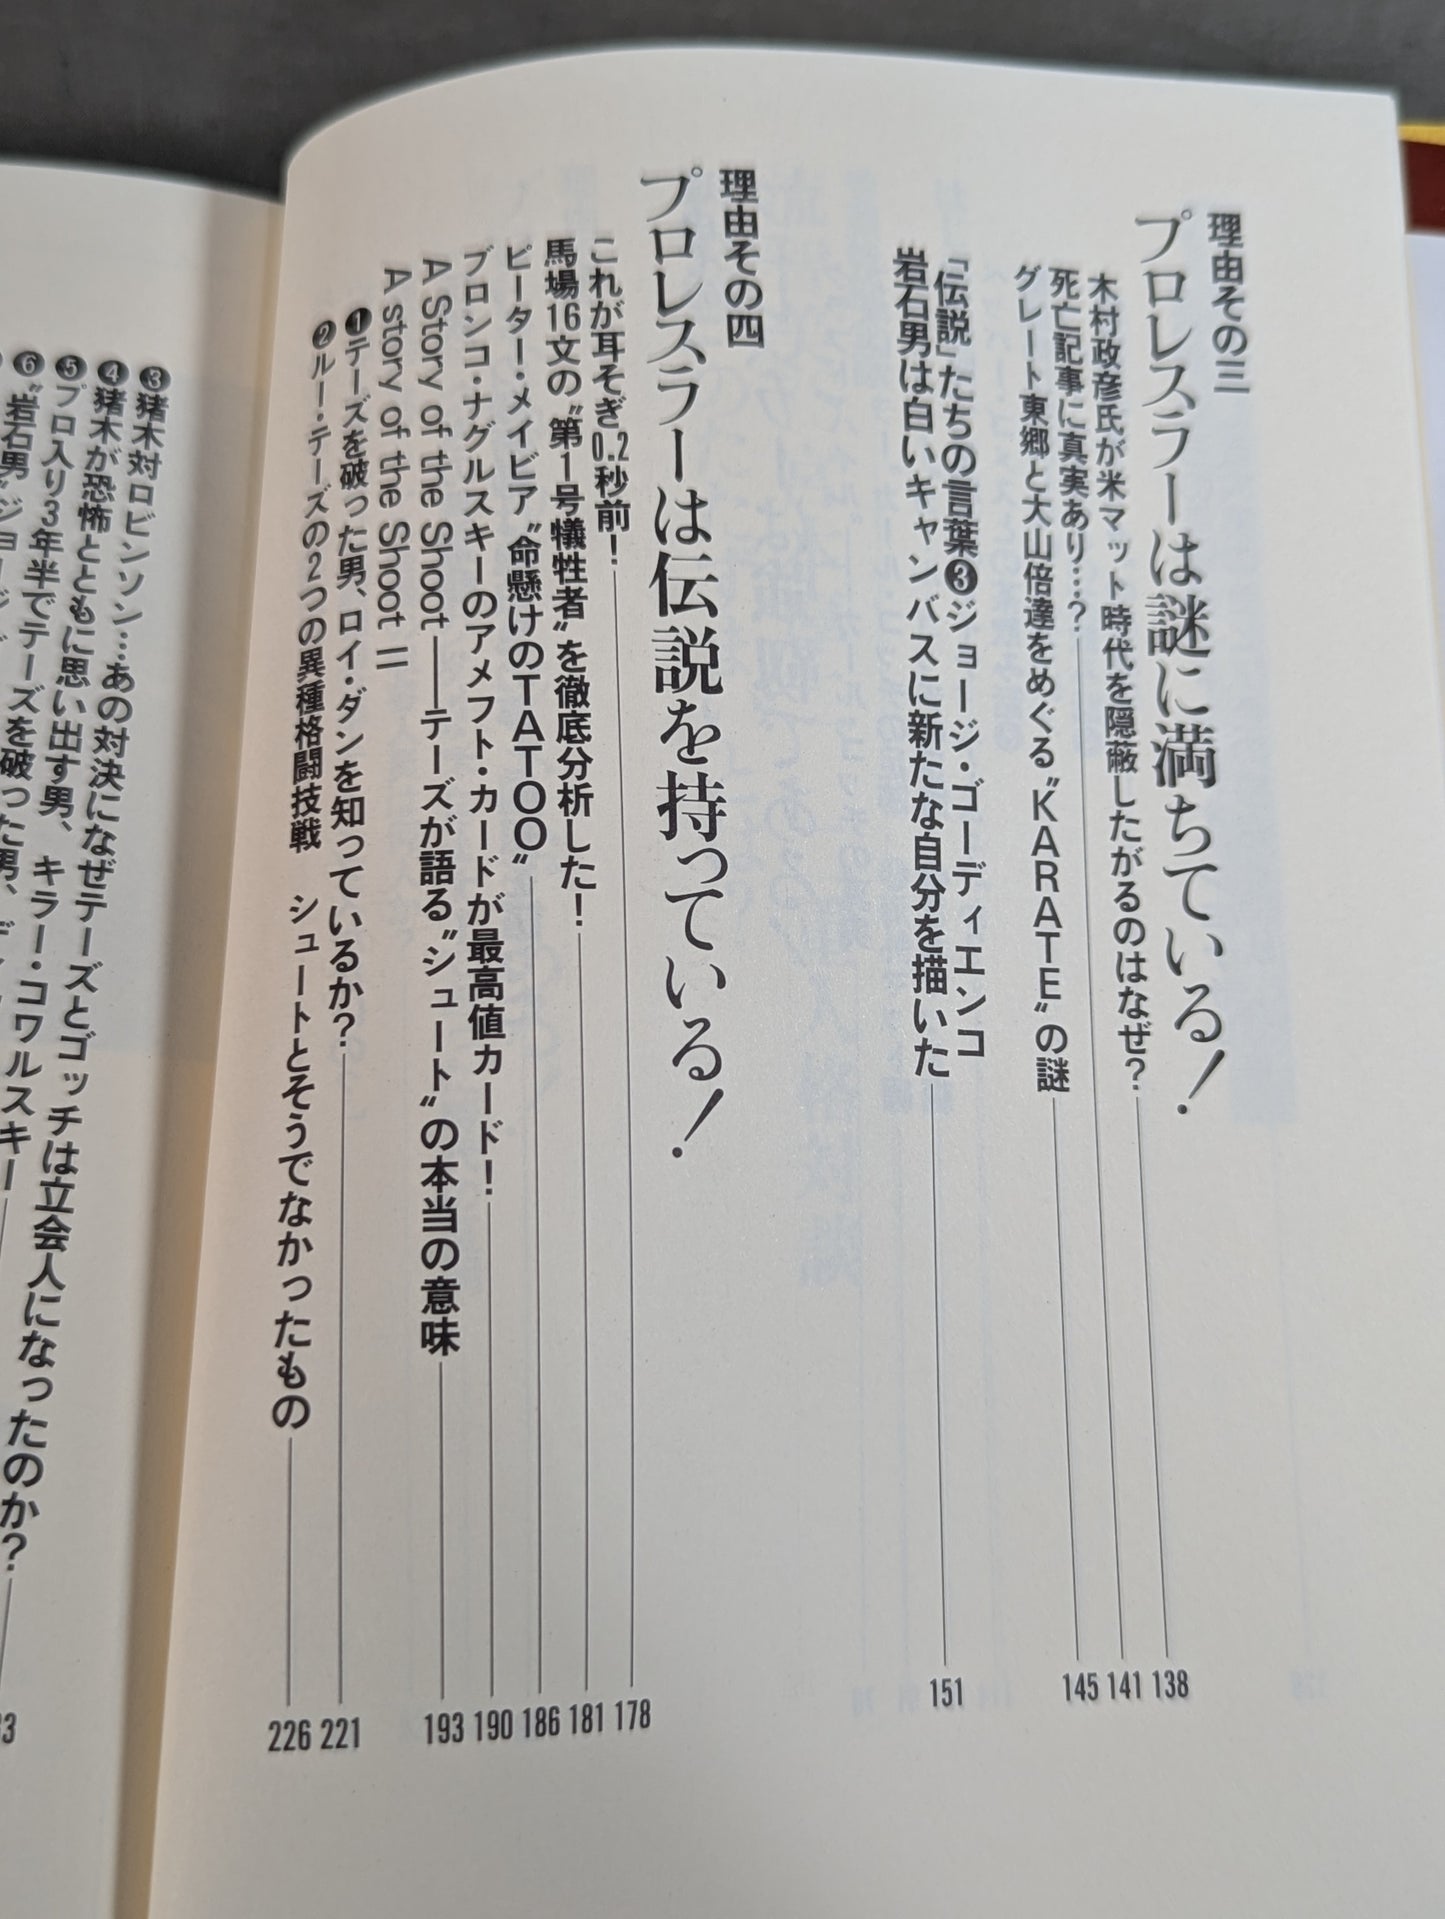 理由その三
プロレスラーは謎に満ちている!
木村政彦氏が米マット時代を隠蔽したがるのはなぜ? 138
死亡記事に真実あり…? 141
グレート東郷と大山倍達をめぐる〝KARATE〟の謎 145
「伝説」たちの言葉❸ジョージ・ゴーディエンコ
岩石男は白いキャンバスに新たな自分を描いた 151
理由その四
プロレスラーは伝説を持っている!
これが耳そぎ0.2秒前! 178
馬場16文の〝第1号犠牲者〟を徹底分析した! 181
ピーター・メイビア〝命懸けのTATOO〟 186
ブロンコ・ナグルスキーのアメフト・カードが最高値カード! 190
A Story of the Shoot――テーズが語る〝シュート〟の本当の意味 193
A story of the Shoot II
❶テーズを破った男、ロイ・ダンを知っているか? 221
❷ルー・テーズの2つの異種格闘技戦 シュートとそうでなかったもの 226
❸猪木対ロビンソン…あの対決になぜテーズとゴッチは立会人になったのか?
❹猪木が恐怖とともに思い出す男、キラー・コワルスキー
❺プロ入り3年半でテーズを破った男、
❻〝岩石男〟ジョー